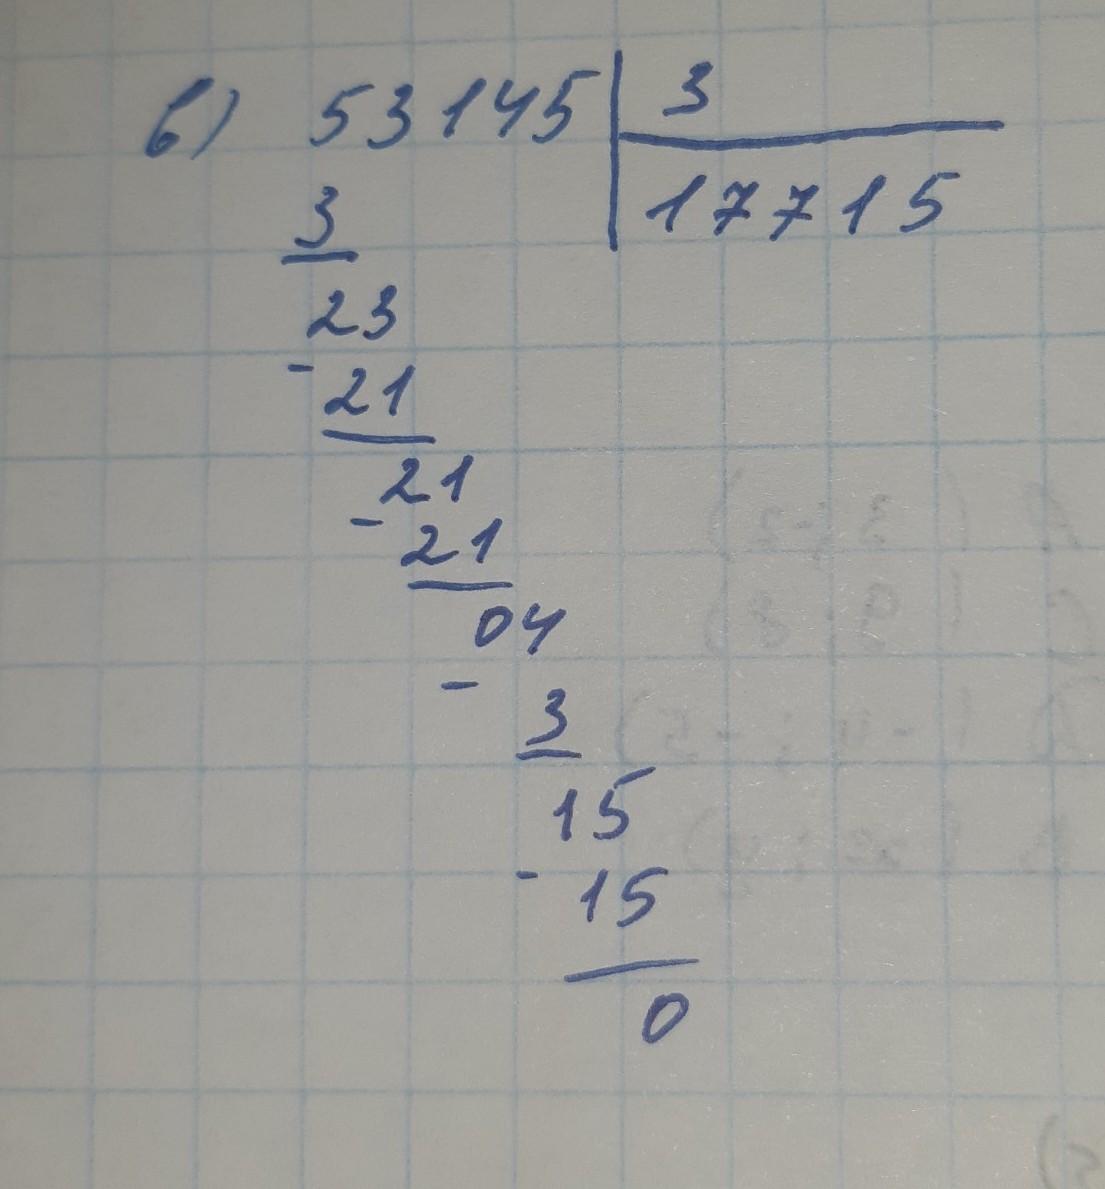 в) 53145 | 3
3
17715
23
- 21
21
- 21
04
- 3
15
- 15
0